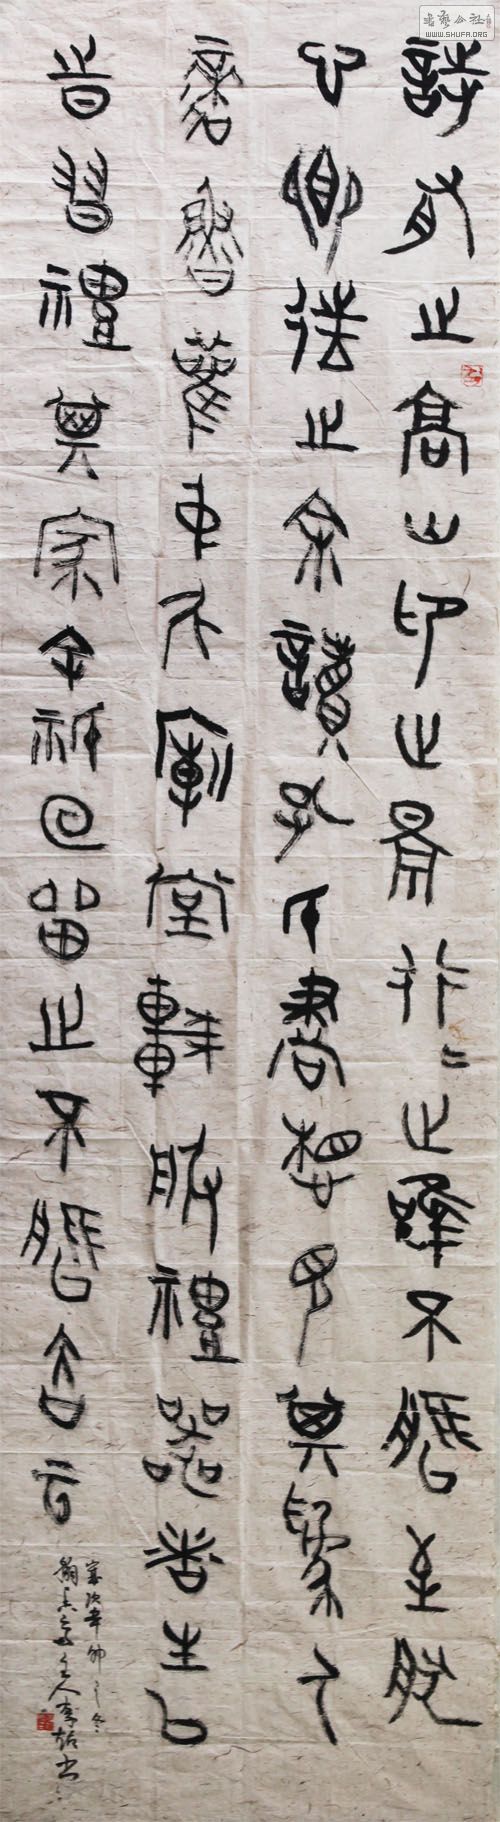 書藝公社
WWW.SHUFA.ORG
詩有之高山仰止景行〻止雖不能至然
心鄉往之余讀孔氏書想見其為人
適魯觀仲尼廟堂車服禮器諸生以
時習禮其家余祗回留之不能去云
歲次辛卯之冬
主人李書